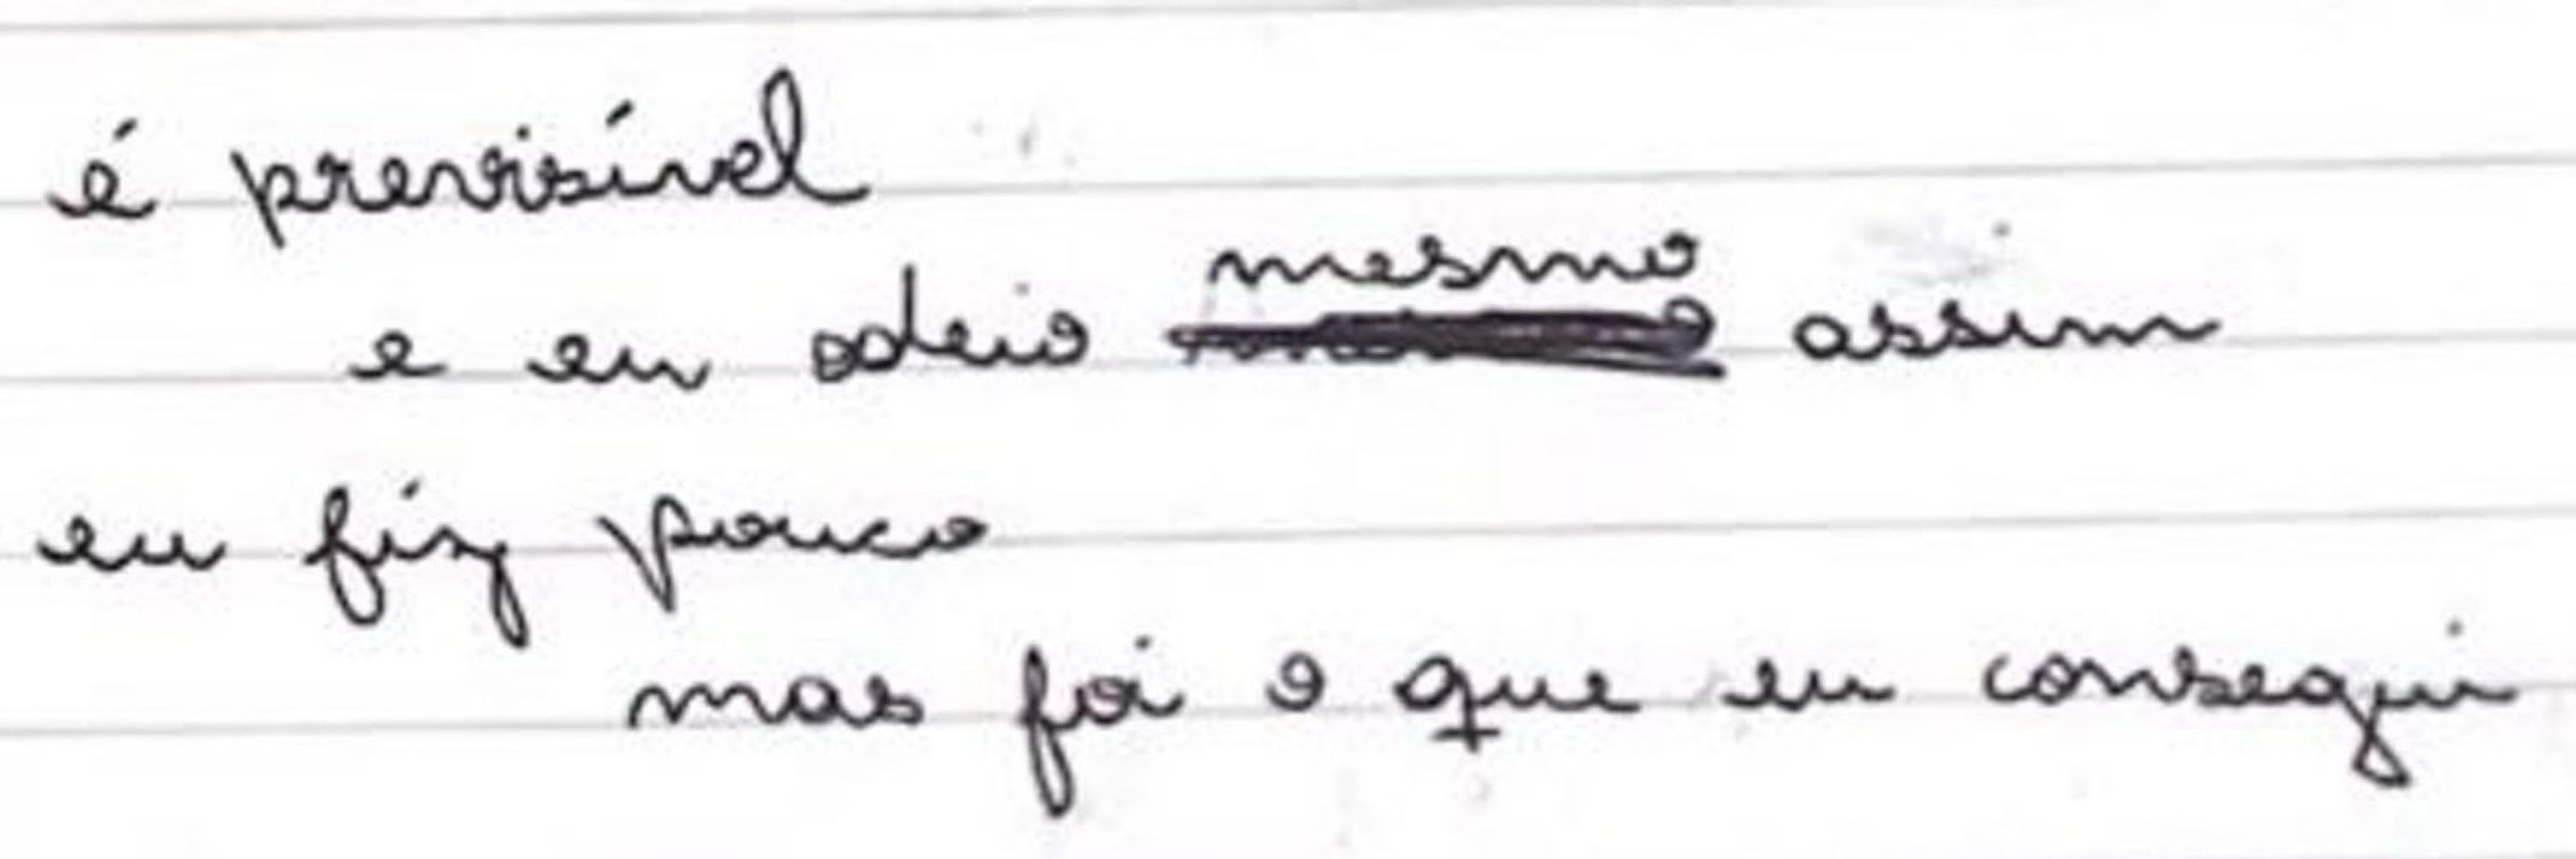 é previsível
e eu odeio mesmo assim
eu fiz pouco
mas foi o que eu consegui